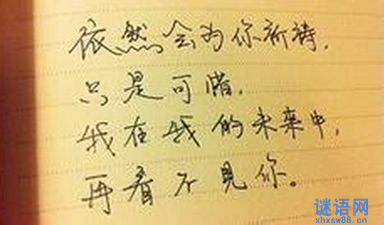 依然会为你祈祷，
只是可惜，
我在我的未来中，
再看不见你。
谜语网
xhxsw88.cn